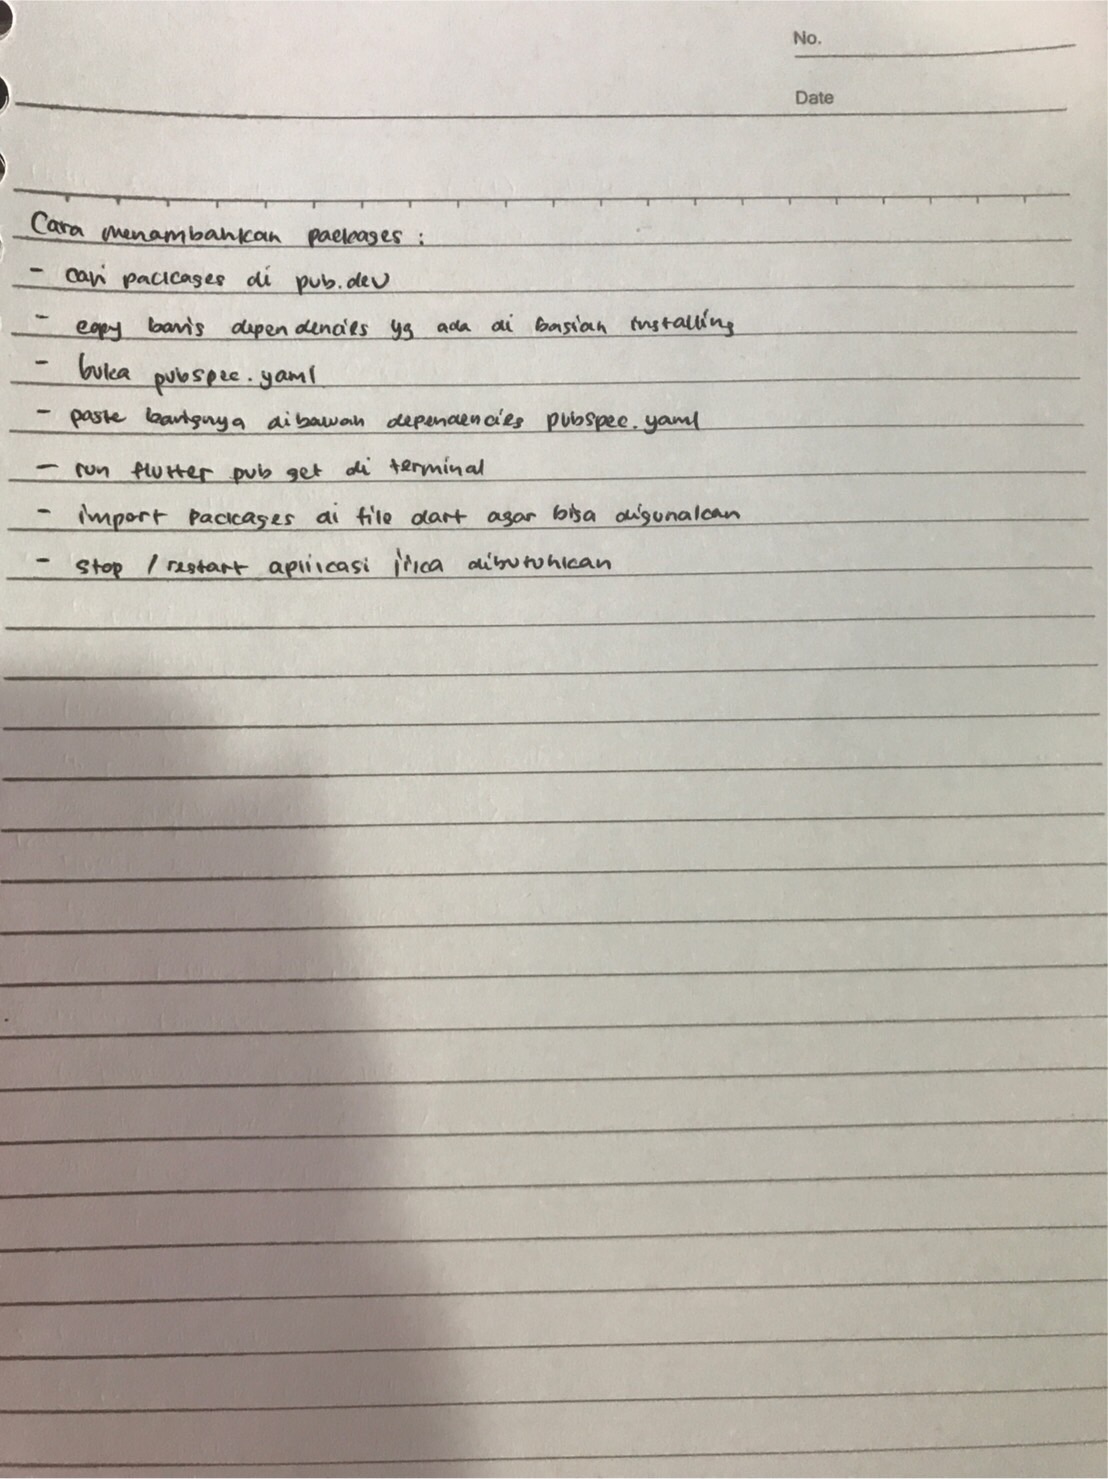 No.
Date
Cara menambahkan packages :
- cari packages di pub.dev
- copy baris dependencies yg ada di bagian installing
- buka pubspec.yaml
- paste barisnya dibawah dependencies pubspec.yaml
- run flutter pub get di terminal
- import packages di file dart agar bisa digunakan
- stop / restart aplikasi jika dibutuhkan